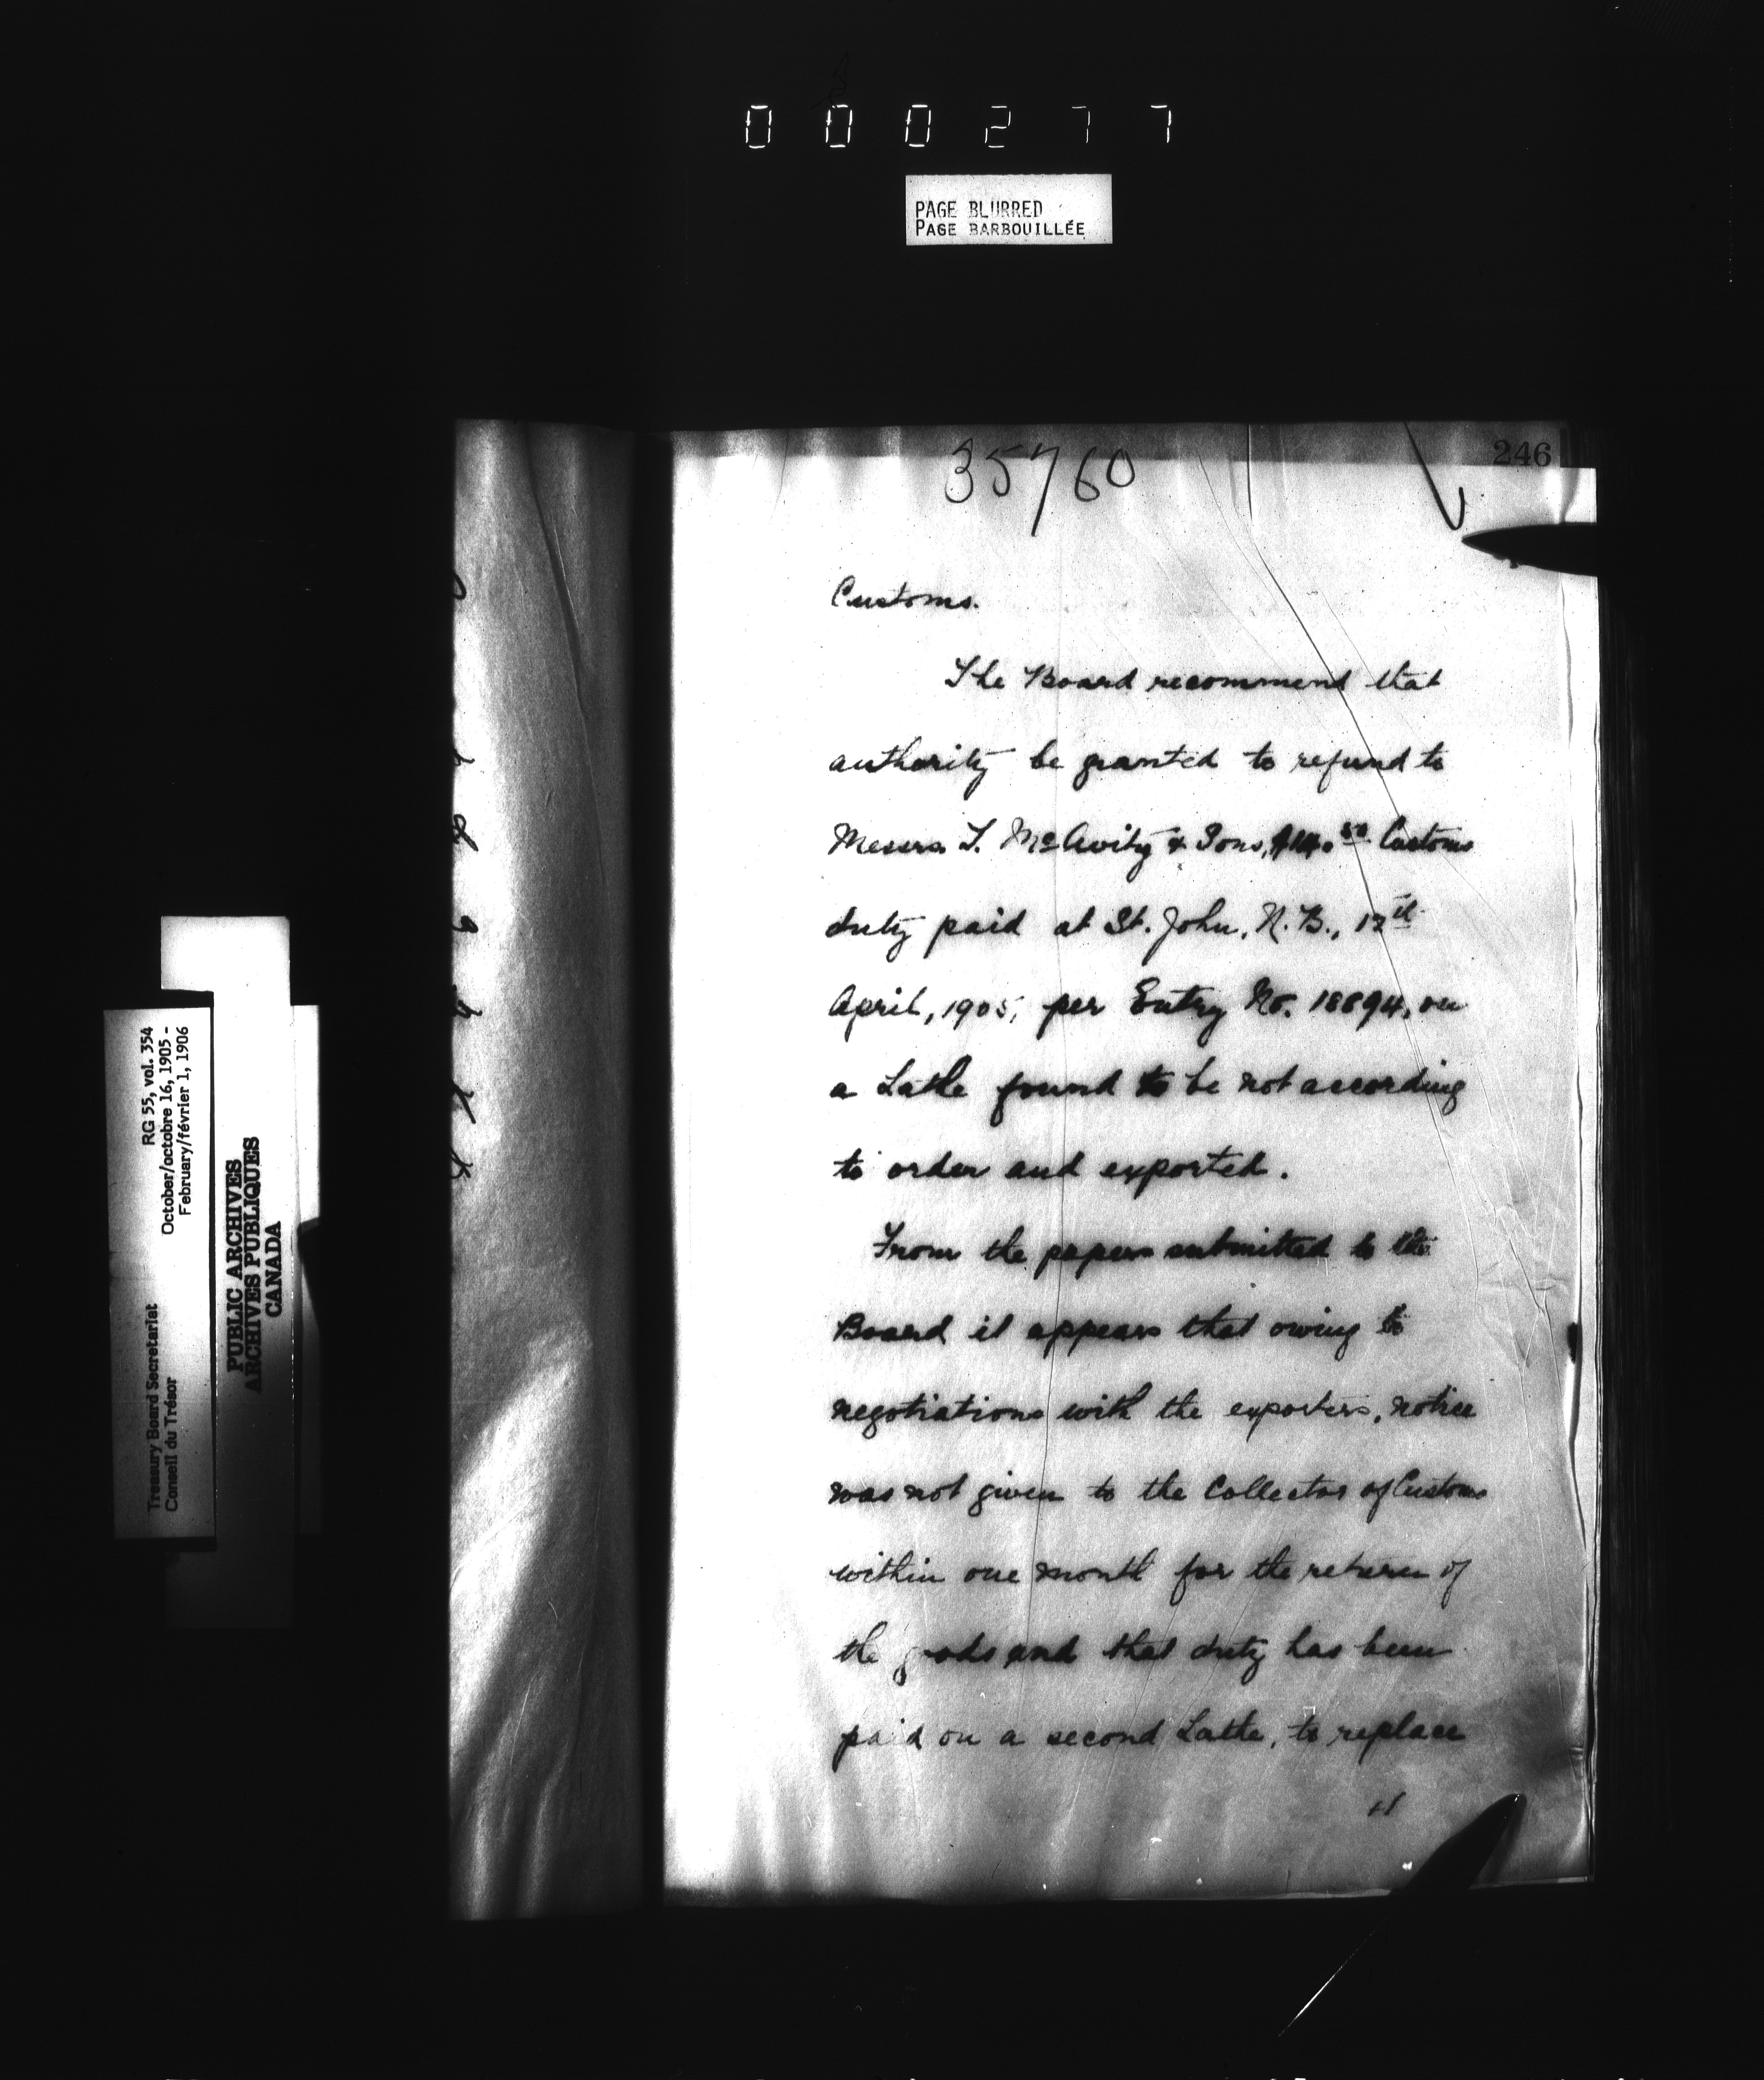 000277
PAGE BLURRED
PAGE BARBOUILLÉE
246
35760
Customs.
The Board recommend that
authority be granted to refund to
Messrs T. McAvity & Sons, Customs
duty paid at St. John, N.B.,
April, 1905, per Entry No. 18894, on
a Lathe found to be not according
to order and exported.
From the papers submitted to the
Board it appears that owing to
negotiations with the exporters, notice
was not given to the Collector of Customs
within one month for the return of
the goods and that duty has been
paid on a second Lathe, to replace
Treasury Board Secretariat RG 55, vol. 354
Conseil du Trésor October/octobre 16, 1905 -
February/février 1, 1906
PUBLIC ARCHIVES
ARCHIVES PUBLIQUES
CANADA